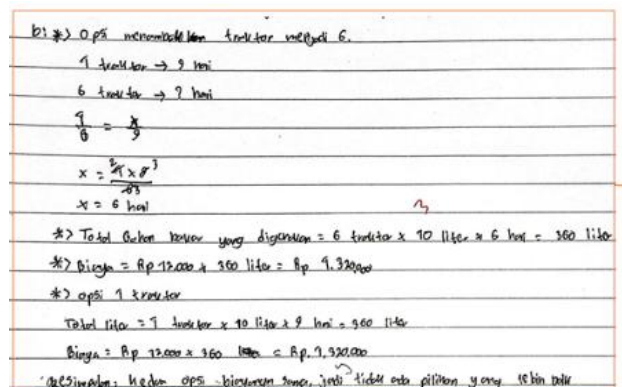 b: *) Opsi menambahkan traktor menjadi 6.
4 traktor → 9 hari
6 traktor → ? hari
4/6 = x/9
x = 4 x 9 / 6
x = 6 hari
*) Total Bahan bakar yang digunakan = 6 traktor x 10 liter x 6 hari = 360 liter
*) Biaya = Rp 12.000 x 360 liter = Rp 4.320.000
*) opsi 4 traktor
Total liter = 4 traktor x 10 liter x 9 hari = 360 liter
Biaya = Rp 12.000 x 360 = Rp. 4.320.000
kesimpulan: kedua opsi biayanya sama, jadi tidak ada pilihan yang lebih baik